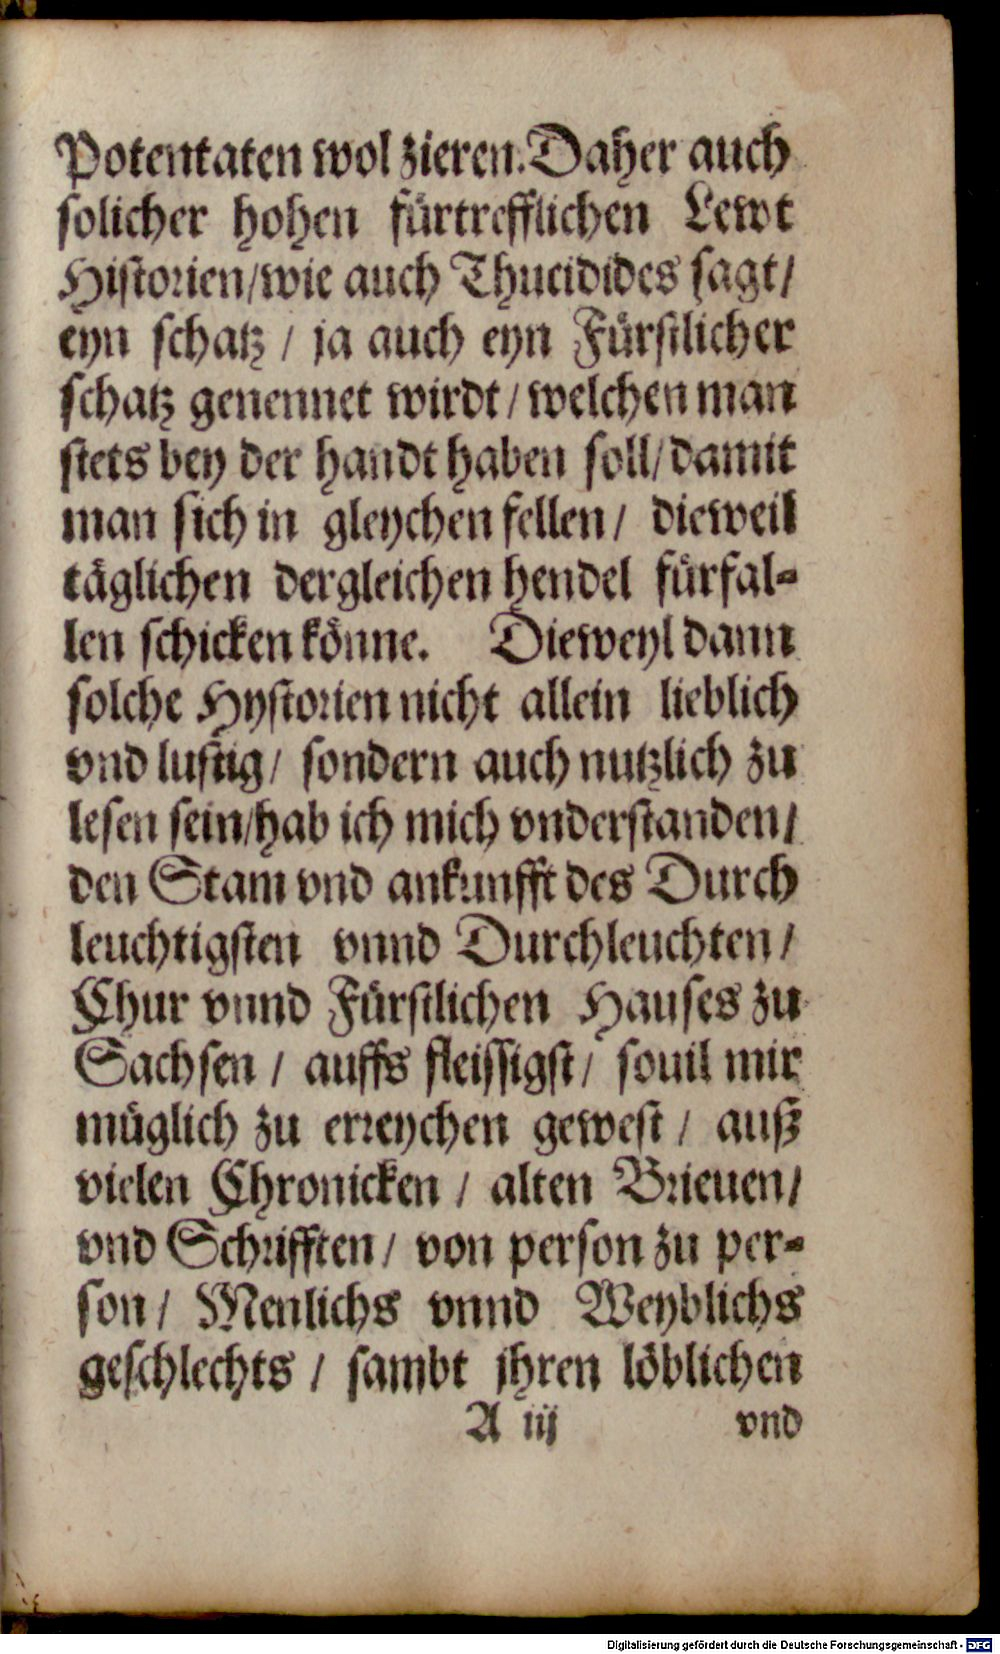 Potentaten wol zieren. Daher auch
solicher hohen fürtrefflichen Lewt
Historien/wie auch Thucidides sagt/
eyn schatz / ja auch eyn Fürstlicher
schatz genennet wirdt / welchen man
stets bey der handt haben soll/damit
man sich in gleychen fellen/ dieweil
täglichen dergleichen hendel fürfal-
len schicken könne. Dieweyl dann
solche Hystorien nicht allein lieblich
vnd lustig/ sondern auch nutzlich zu
lesen sein/hab ich mich vnderstanden/
den Stam vnd ankunfft des Durch
leuchtigsten vnnd Durchleuchten/
Chur vnnd Fürstlichen Hauses zu
Sachsen / auffs fleissigst/ souil mir
müglich zu erreychen gewest / auß
vielen Chronicken / alten Brieuen/
vnd Schrifften/ von person zu per-
son/ Menlichs vnnd Weyblichs
geschlechts / sambt jhren löblichen
A iij vnd
Digitalisierung gefördert durch die Deutsche Forschungsgemeinschaft - DFG